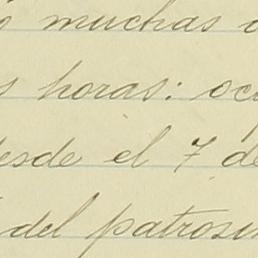 ó muchas
s horas: oc
desde el 7 de
del patrosin